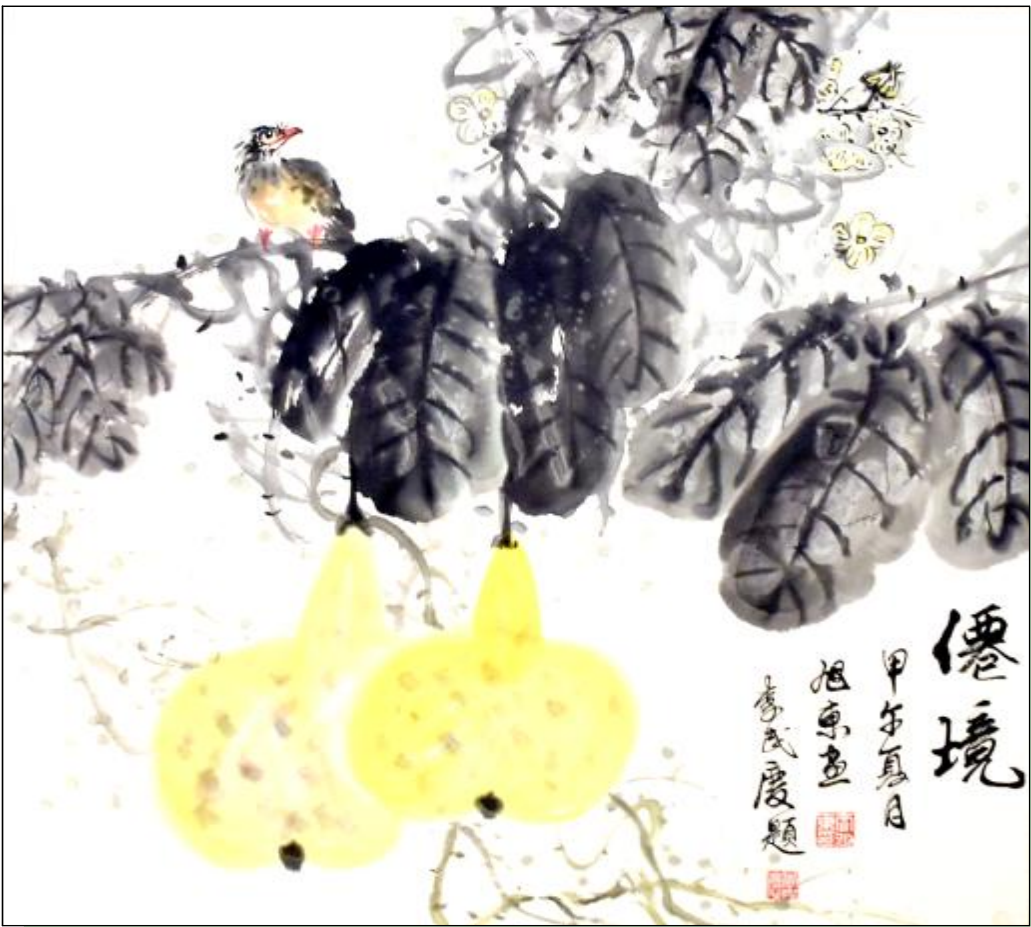 僊境
甲午夏月
旭東画
李民慶題